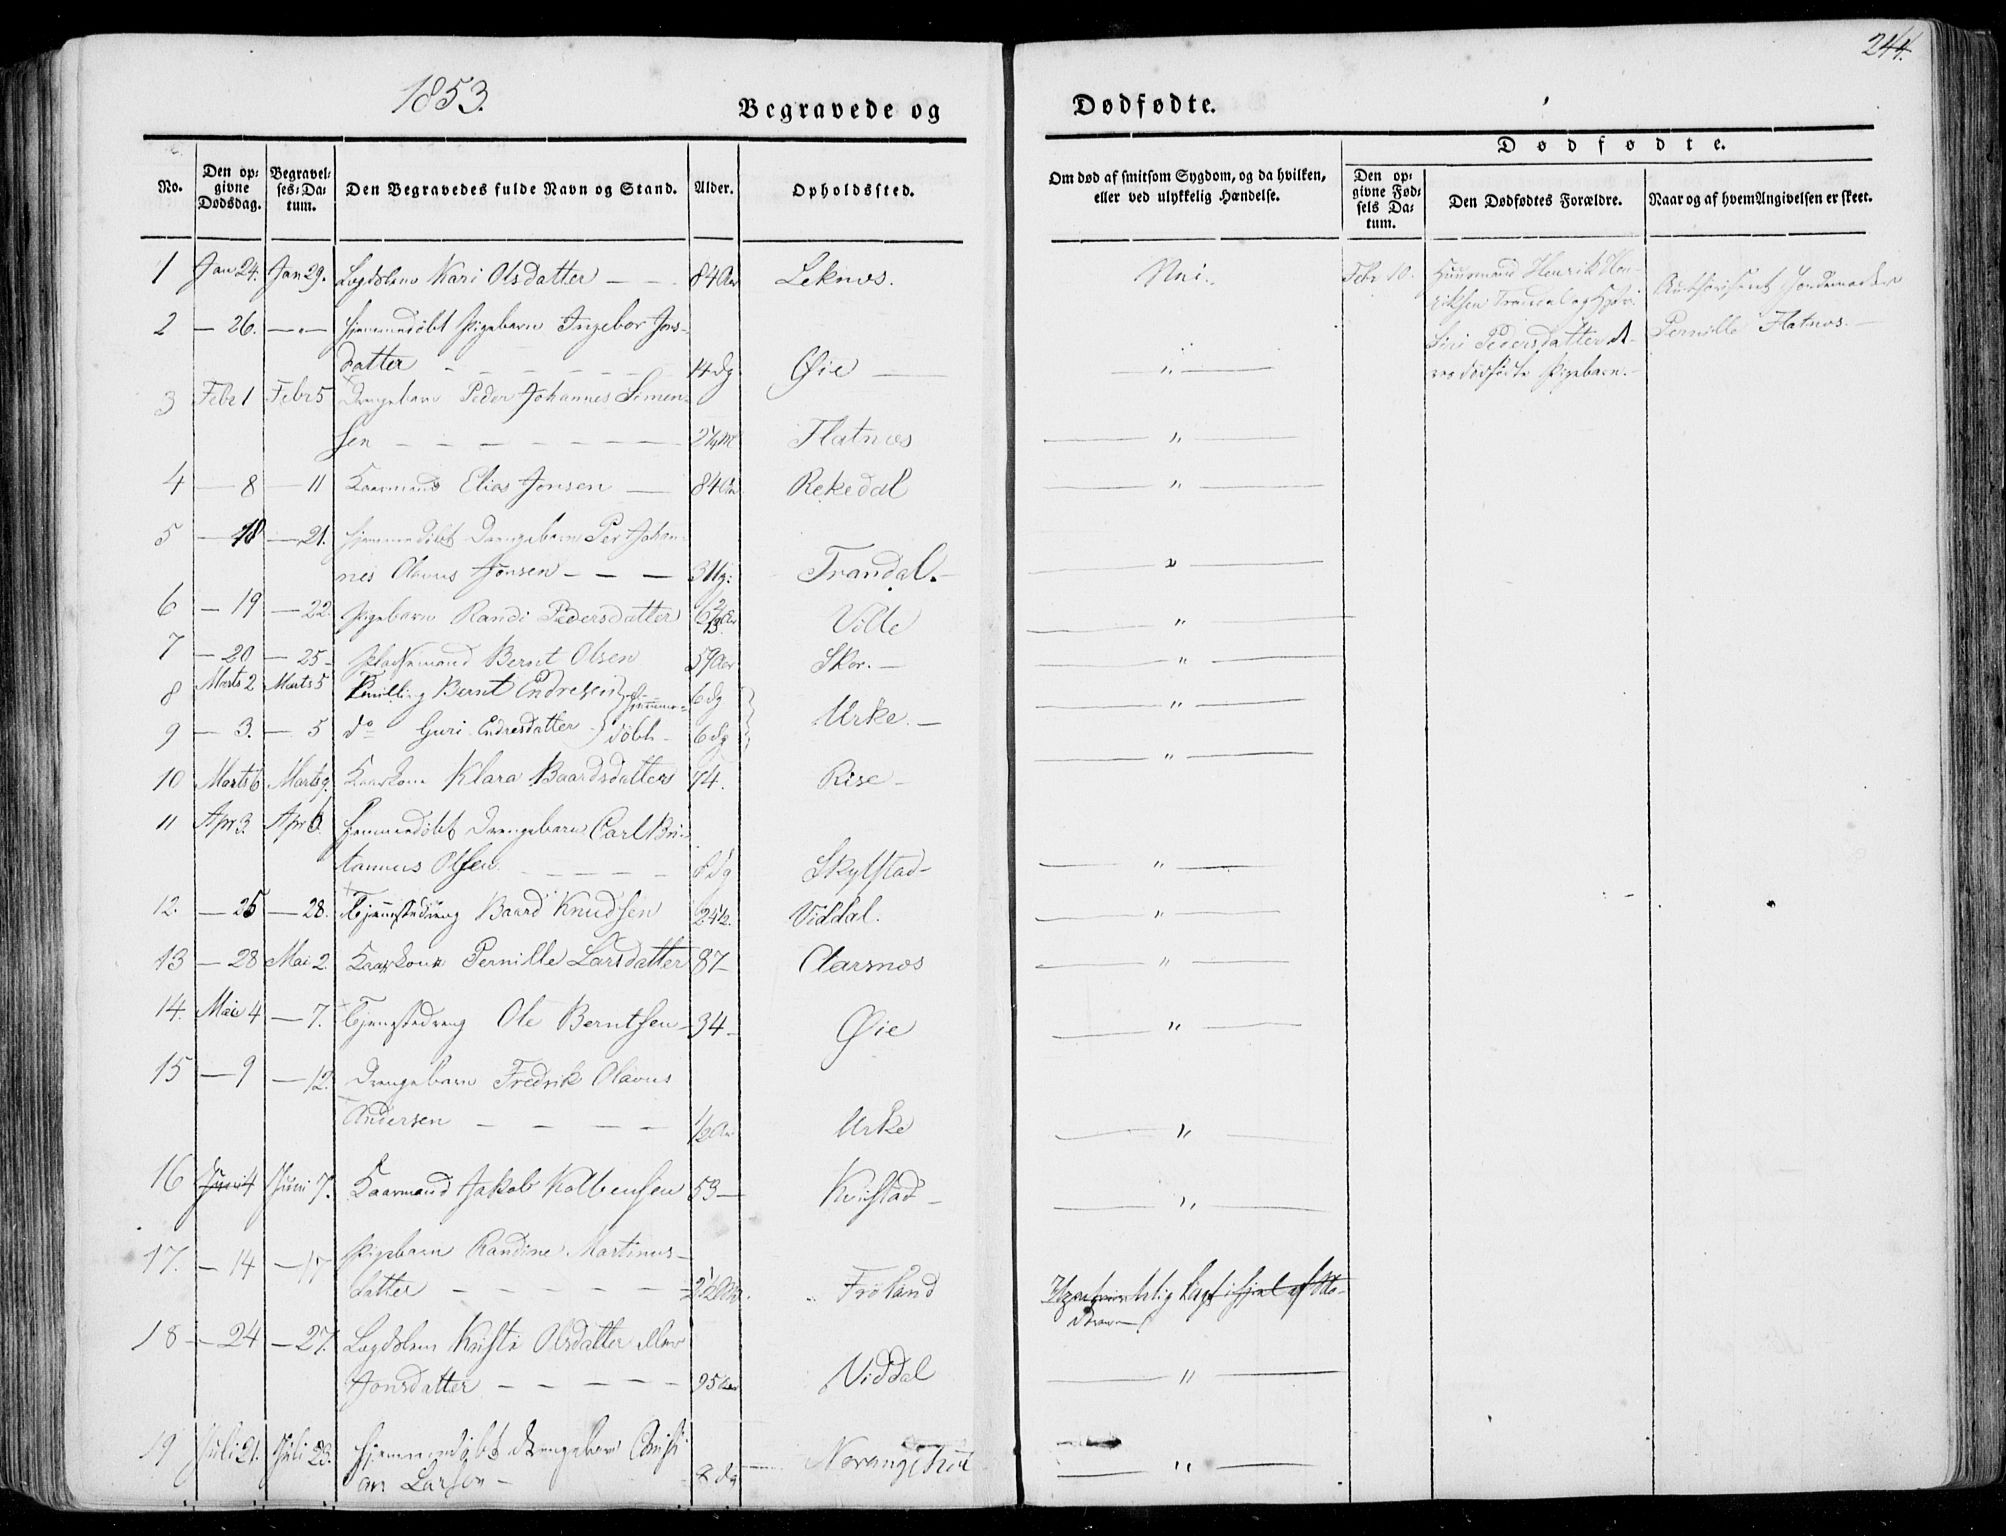 244.
1853.
Begravede og Dødfødte.
No.
Den op-
givne
Dødsdag.
Begravel-
ses-Da-
tum.
Den Begravedes fulde Navn og Stand.
Alder.
Opholdssted.
Om død af smitsom Sygdom, og da hvilken,
eller ved ulykkelig Hændelse.
Dødfødte.
Den op-
givne Fød-
sels Da-
tum.
Den Dødfødtes Forældre.
Naar og af hvem Angivelsen er skeet.
1 Jan 24. Jan 29. Lægdslem Kari Olsdatter — — 84 Aar Leknes. Nei.
Febr 10. Huusmand Henrik Hen-
riksen Trandal og Hstr:
Siri Pedersdatter
dødfødte Pigebarn. —
Authoriseret Jordemoder
Pernille Flatnes. —
2 — 26. — „ — hjemmedøbt Pigebarn Ingebor Jons-
datter — — — — 14 dg Øie — „ —
3 Febr 1 Febr 5 Drengebarn Peder Johannes Simen-
sen — — — — Flatnes — „ —
4 — 8 — 11 Kaarmand Elias Jonsen — 84 Aar Rekedal — „ —
5 — 18 — 21. hjemmedøbt Drengebarn Per Johan-
nes Olavus Jonsen — — — 3 Ug: Trandal. — — „ —
6 — 19 — 22. Pigebarn Randi Pedersdatter Ville — „ —
7 — 20 — 25 — Bernt Olsen 59 Aar Skor. — — „ —
8 Marts 2 Marts 5 Tvilling Bernt Endresen hjemme- 6 dg — „ —
9 — 3. — 5 do Guri Endresdatter døbt 6 dg Urke. — — „ —
10 Marts 6 Marts 9. Kaarkone Klara Baardsdatter 74. Rise —
11 Apr 3. Apr 6. hjemmedøbt Drengebarn Carl Bri-
tannus Olsen. — — — — 8 dg Skylstad — — „ —
12. — 25 — 28. Tjenestedreng Baard Knudsen 24 ½. Viddal. — „ —
13 — 28 Mai 2. Kaarkone Pernille Larsdatter 87 — Aarsnes — „ —
14. Mai 4 — 7. Tjenestedreng Ole Berntsen — 34 — Øie — „ —
15 — 9 — 12. Drengebarn Fredrik Olavus
Andersen — — — — ½ Aar Urke — „ —
16 Juni 4 Juni 7. Kaarmand Jakob Kolbensen 53 — Kvistad — — „ —
17. — 14 — 17 Pigebarn Randine Martinus-
datter — — — — 2 ½ Frøland
ihjel af Mo-
deren
18 — 24 — 27. Lægdslem Kirsti Olsdatter eller
Jonsdatter — — — — 95 Aar Viddal — „ —
19 Juli 21. Juli 23. hjemmedøbt Drengebarn Christi
an Larsen — 8 dg — — „ —